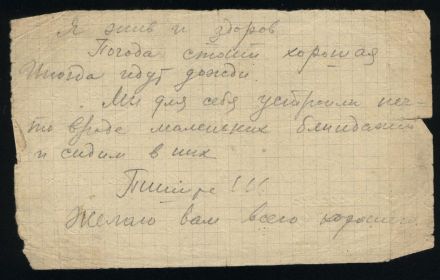 Я жив и здоров
Погода стоит хорошая
Иногда идут дожди.
Мы для себя устроили неч-
то вроде маленьких блиндажей
и сидим в них
Пишите!!!
Желаю вам всего хорошего.